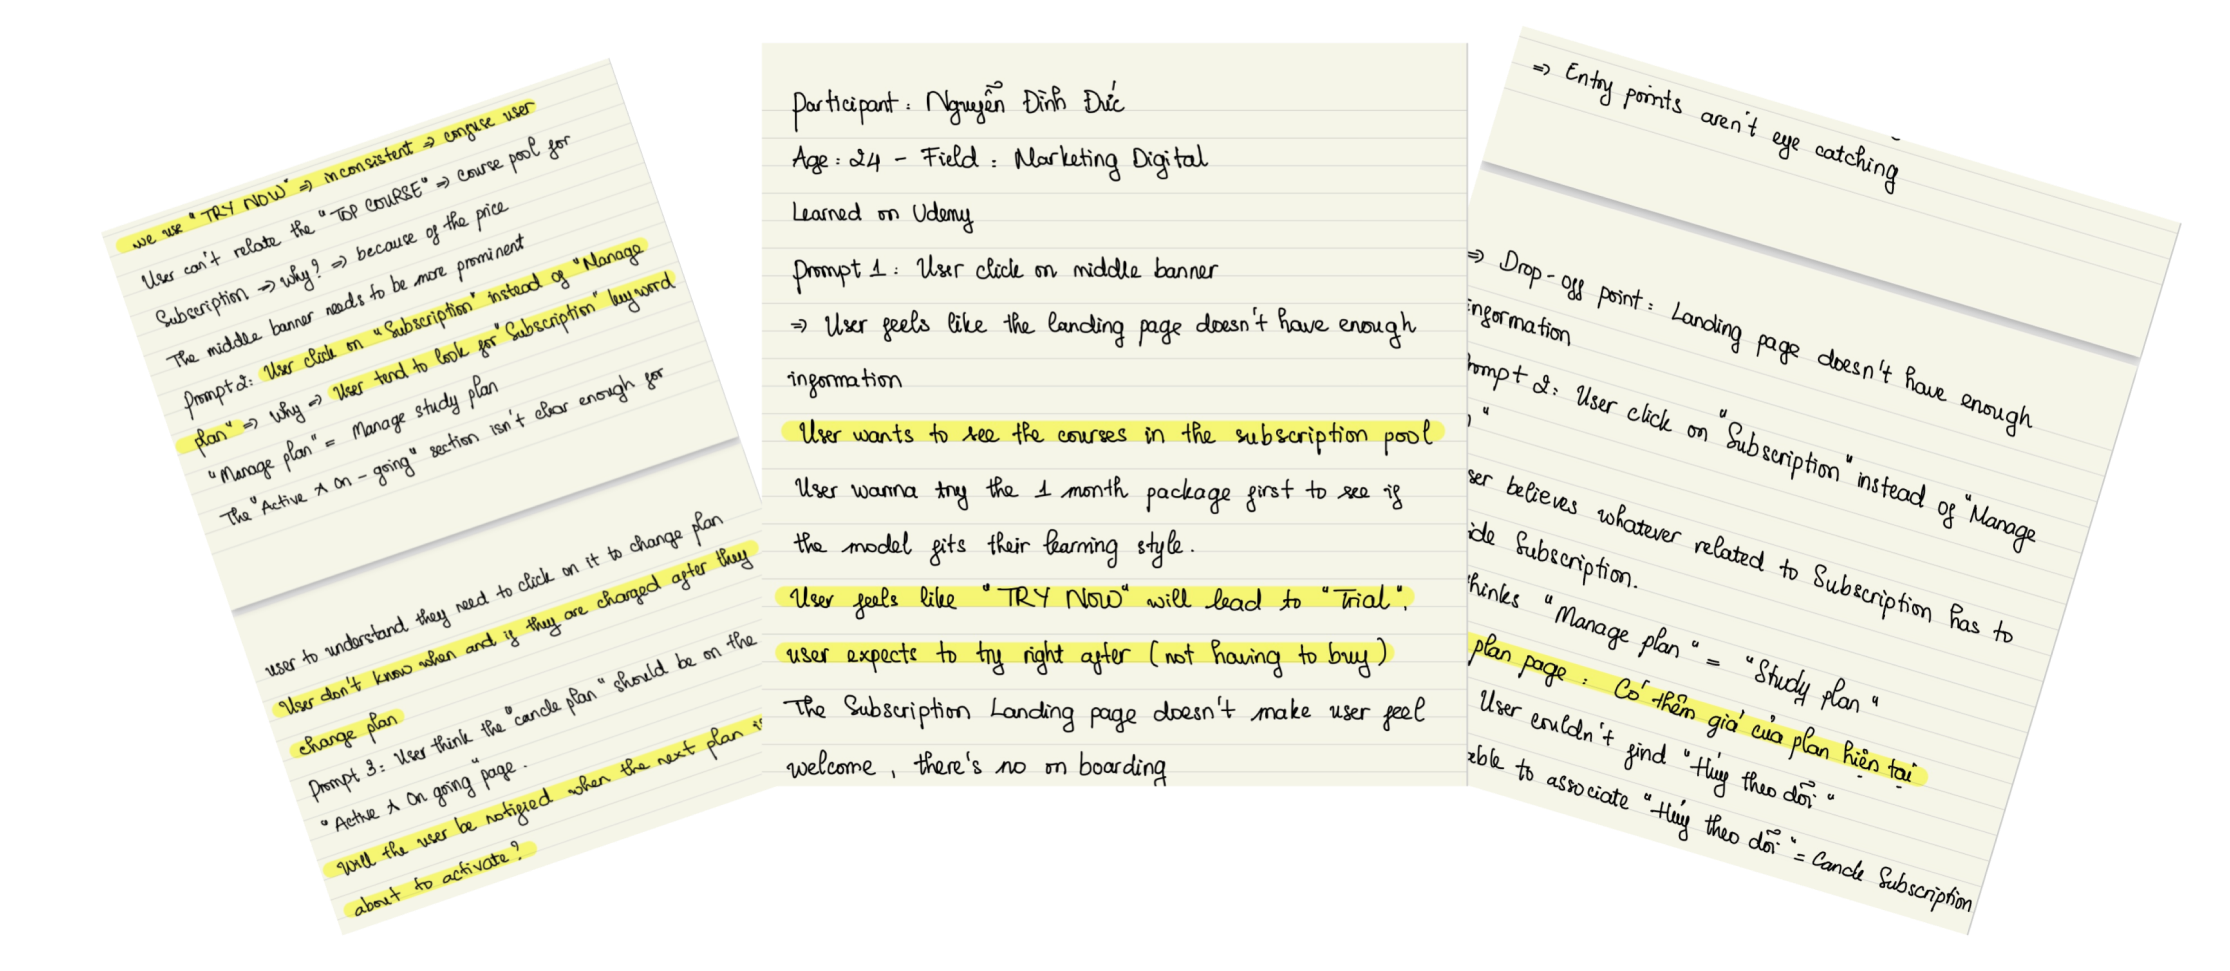 we use "TRY NOW" => inconsistent => confuse user
User can't relate the "TOP COURSE" => course pool for
Subscription => why? => because of the price
The middle banner needs to be more prominent
Prompt 2: User click on "Subscription" instead of "Manage
plan" => why => User tend to look for "Subscription" keyword
"Manage plan" = Manage study plan
The "Active & on-going" section isn't clear enough for
user to understand they need to click on it to change plan
User don't know when and if they are charged after they
change plan
Prompt 3: User think the "cancle plan" should be on the
"Active & on going" page.
Will the user be notified when the next plan is
about to activate?
Participant: Nguyễn Đình Đức
Age: 24 - Field: Marketing Digital
Learned on Udemy
Prompt 1: User click on middle banner
=> User feels like the landing page doesn't have enough
information
User wants to see the courses in the subscription pool
User wanna try the 1 month package first to see if
the model fits their learning style.
User feels like "TRY NOW" will lead to "Trial".
user expects to try right after (not having to buy)
The Subscription Landing page doesn't make user feel
welcome, there's no on boarding
=> Entry points aren't eye catching
=> Drop-off point: Landing page doesn't have enough
information
Prompt 2: User click on "Subscription" instead of "Manage
"
User believes whatever related to Subscription has to
Subscription.
thinks "Manage plan" = "Study plan"
plan page: Có thêm giá của plan hiện tại
User couldn't find "Hủy theo dõi"
able to associate "Hủy theo dõi" = Cancle Subscription